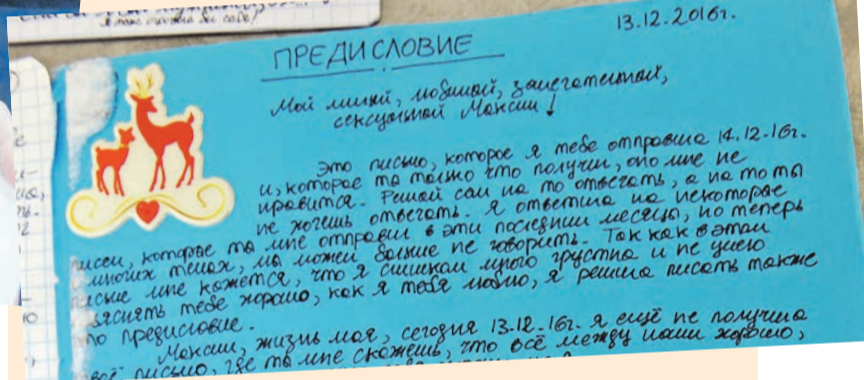 13.12.2016г.
ПРЕДИСЛОВИЕ
Мой милый, любимый, замечательный,
сексуальный Максим!
Это письмо, которое я тебе отправила 14.12.16г.
и, которое ты только что получил, оно мне не
нравится. Решай сам на то отвечать, а на то ты
не хочешь отвечать. Я ответила на некоторые
писем, которые ты мне отправил в эти последнии месяцы, но теперь
многих темах, мы можем больше не говорить. Так как в этом
письме мне кажется, что я слишком много грустна и не умею
яснять тебе хорошо, как я тебя люблю, я решила писать также
это предисловие.
Максим, жизнь моя, сегодня 13.12.16г. я ещё не получила
твоё письмо, где ты мне скажешь, что всё между нами хорошо,